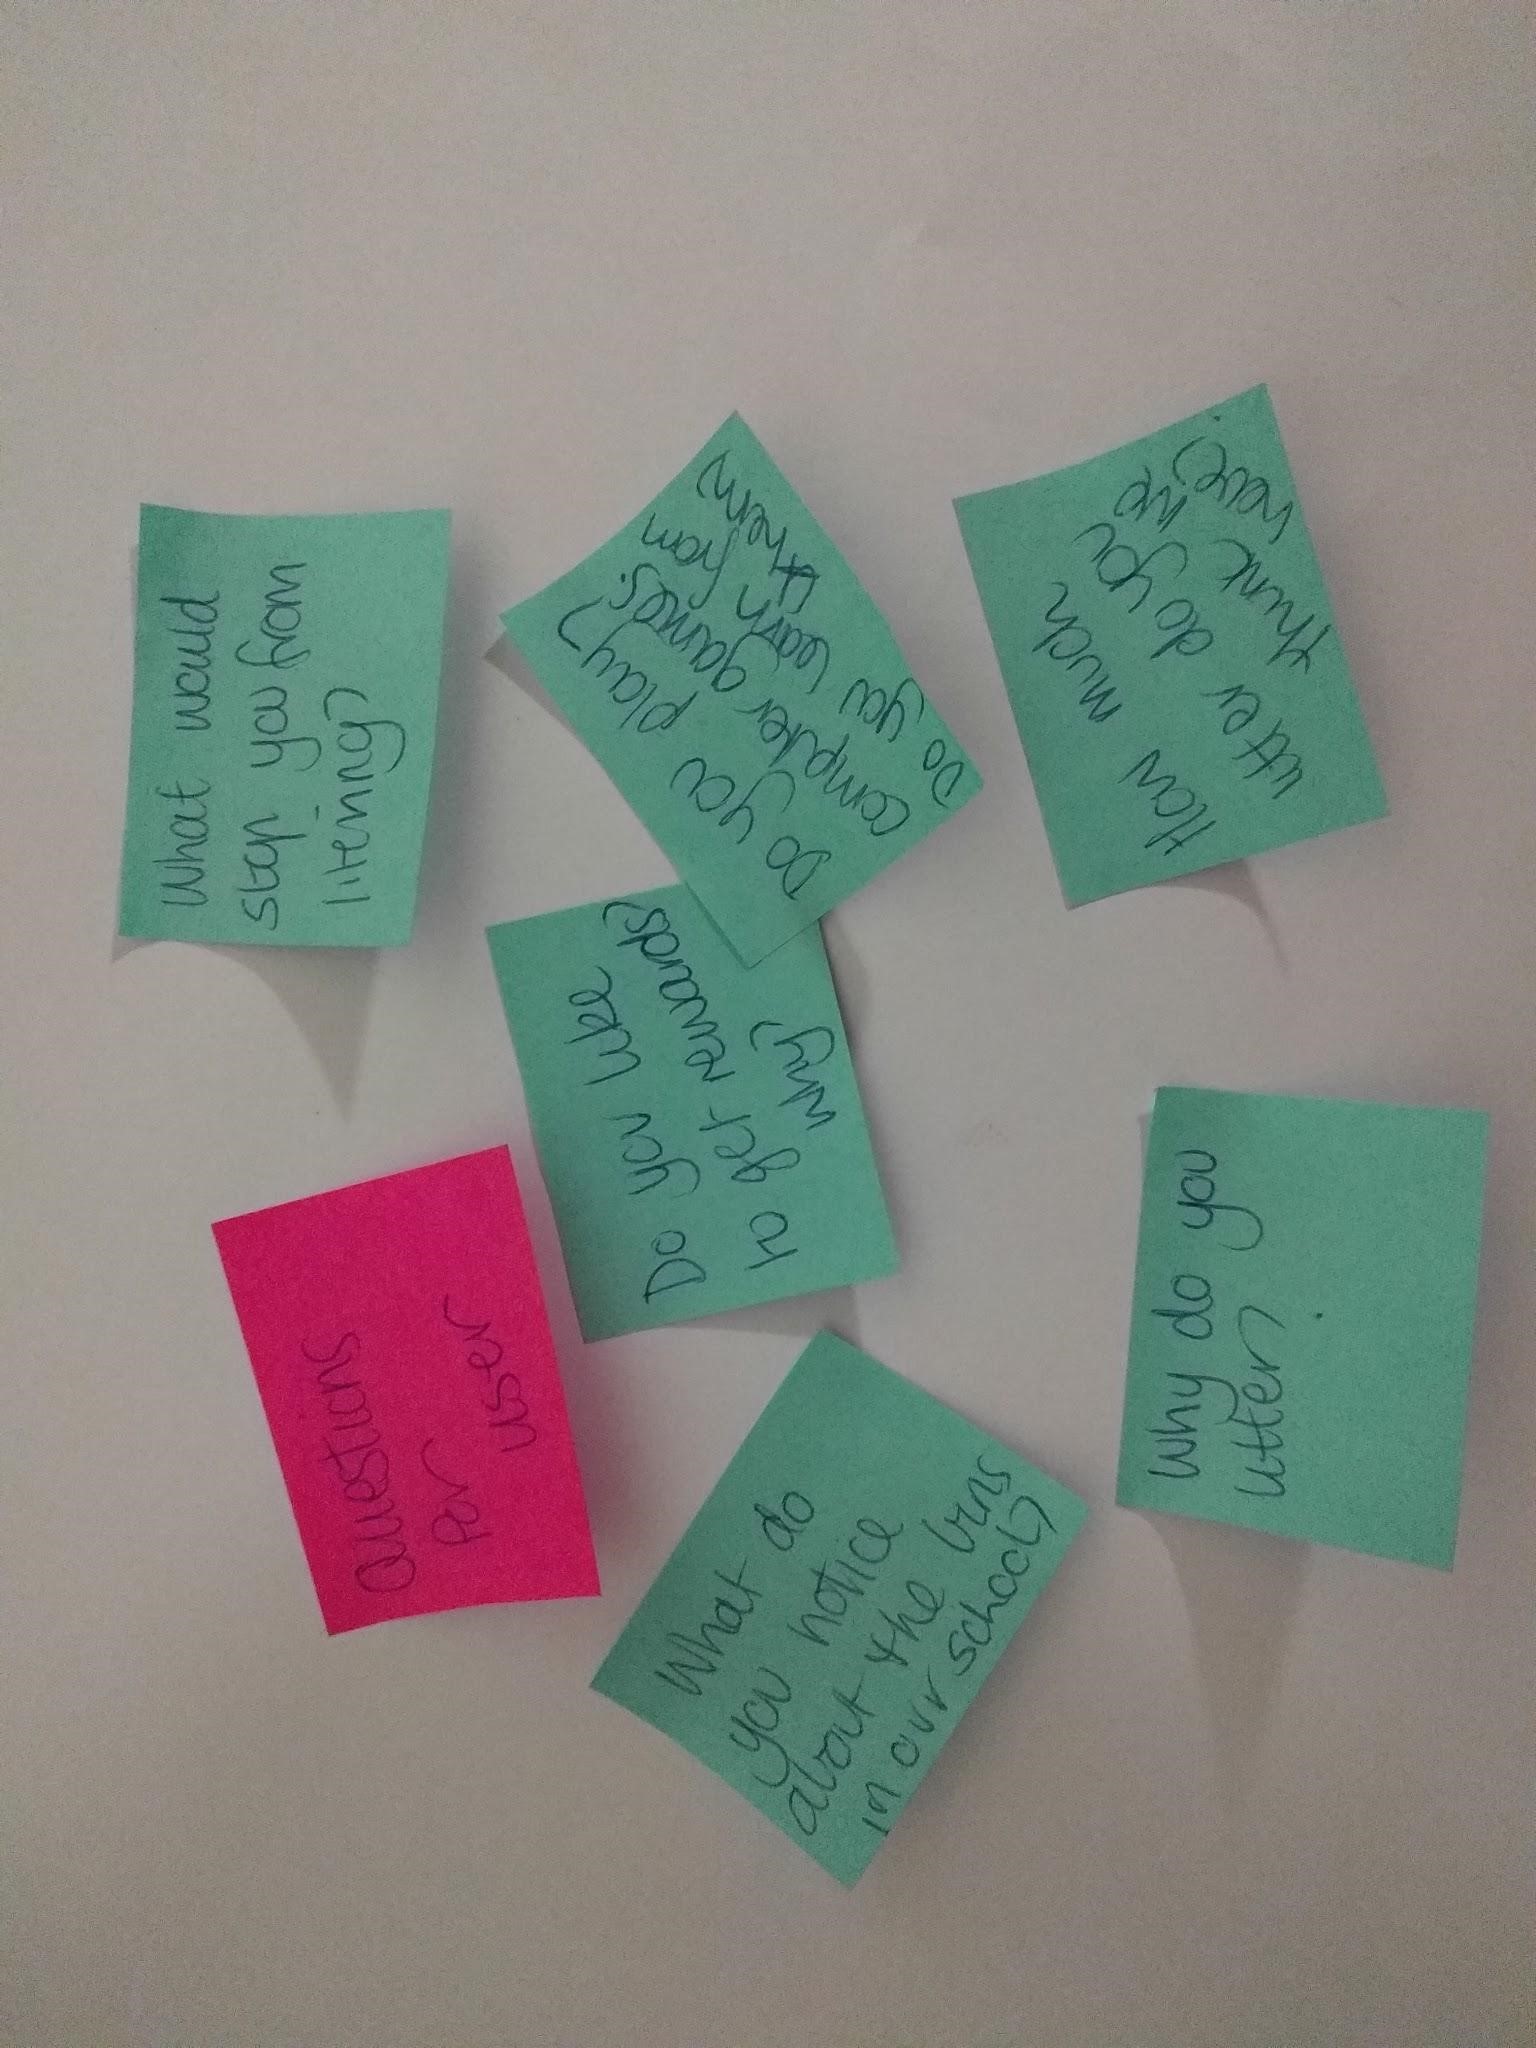 Questions
for
user
What would
stop you from
litering?
Do you like
to get rewards?
why?
What do
you notice
about the bins
in our school?
Do you play?
computer games?
Do you learn from
them
How much
litter do you
do you
think we
have?
Why do you
litter?